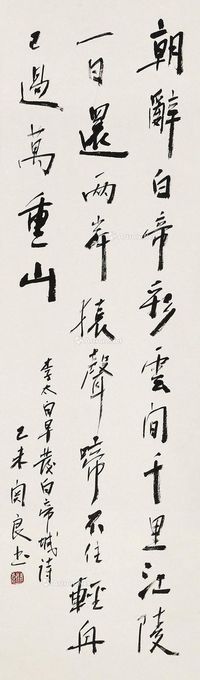 朝辭白帝彩雲間千里江陵
一日還兩岸猿聲啼不住輕舟
已過萬重山
李太白早發白帝城詩
己未関良书